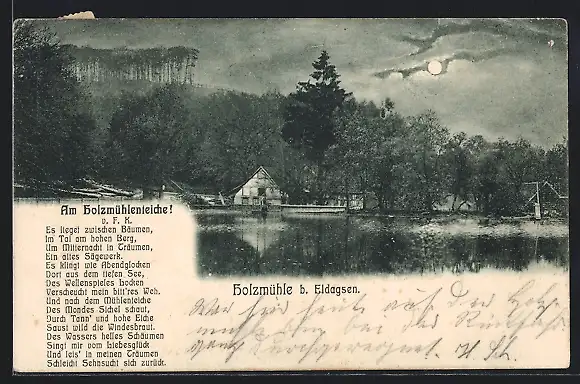 Am Holzmühlenteiche!
v. F. K.
Es lieget zwischen Bäumen,
Im Tal am hohen Berg,
Um Mitternacht in Träumen,
Ein altes Sägewerk.
Es klingt wie Abendglocken
Dort aus dem tiefen See,
Des Wellenspieles Locken
Verscheucht mein bitt'res Weh.
Und nach dem Mühlenteiche
Des Mondes Sichel schaut,
Durch Tann' und hohe Eiche
Saust wild die Windesbraut.
Des Wassers helles Schäumen
Singt mir vom Liebesglück
Und leis' in meinen Träumen
Schleicht Sehnsucht sich zurück.
Holzmühle b. Eldagsen.
War hier heute auf der
der Rückfahrt
ganz durchgeregnet.